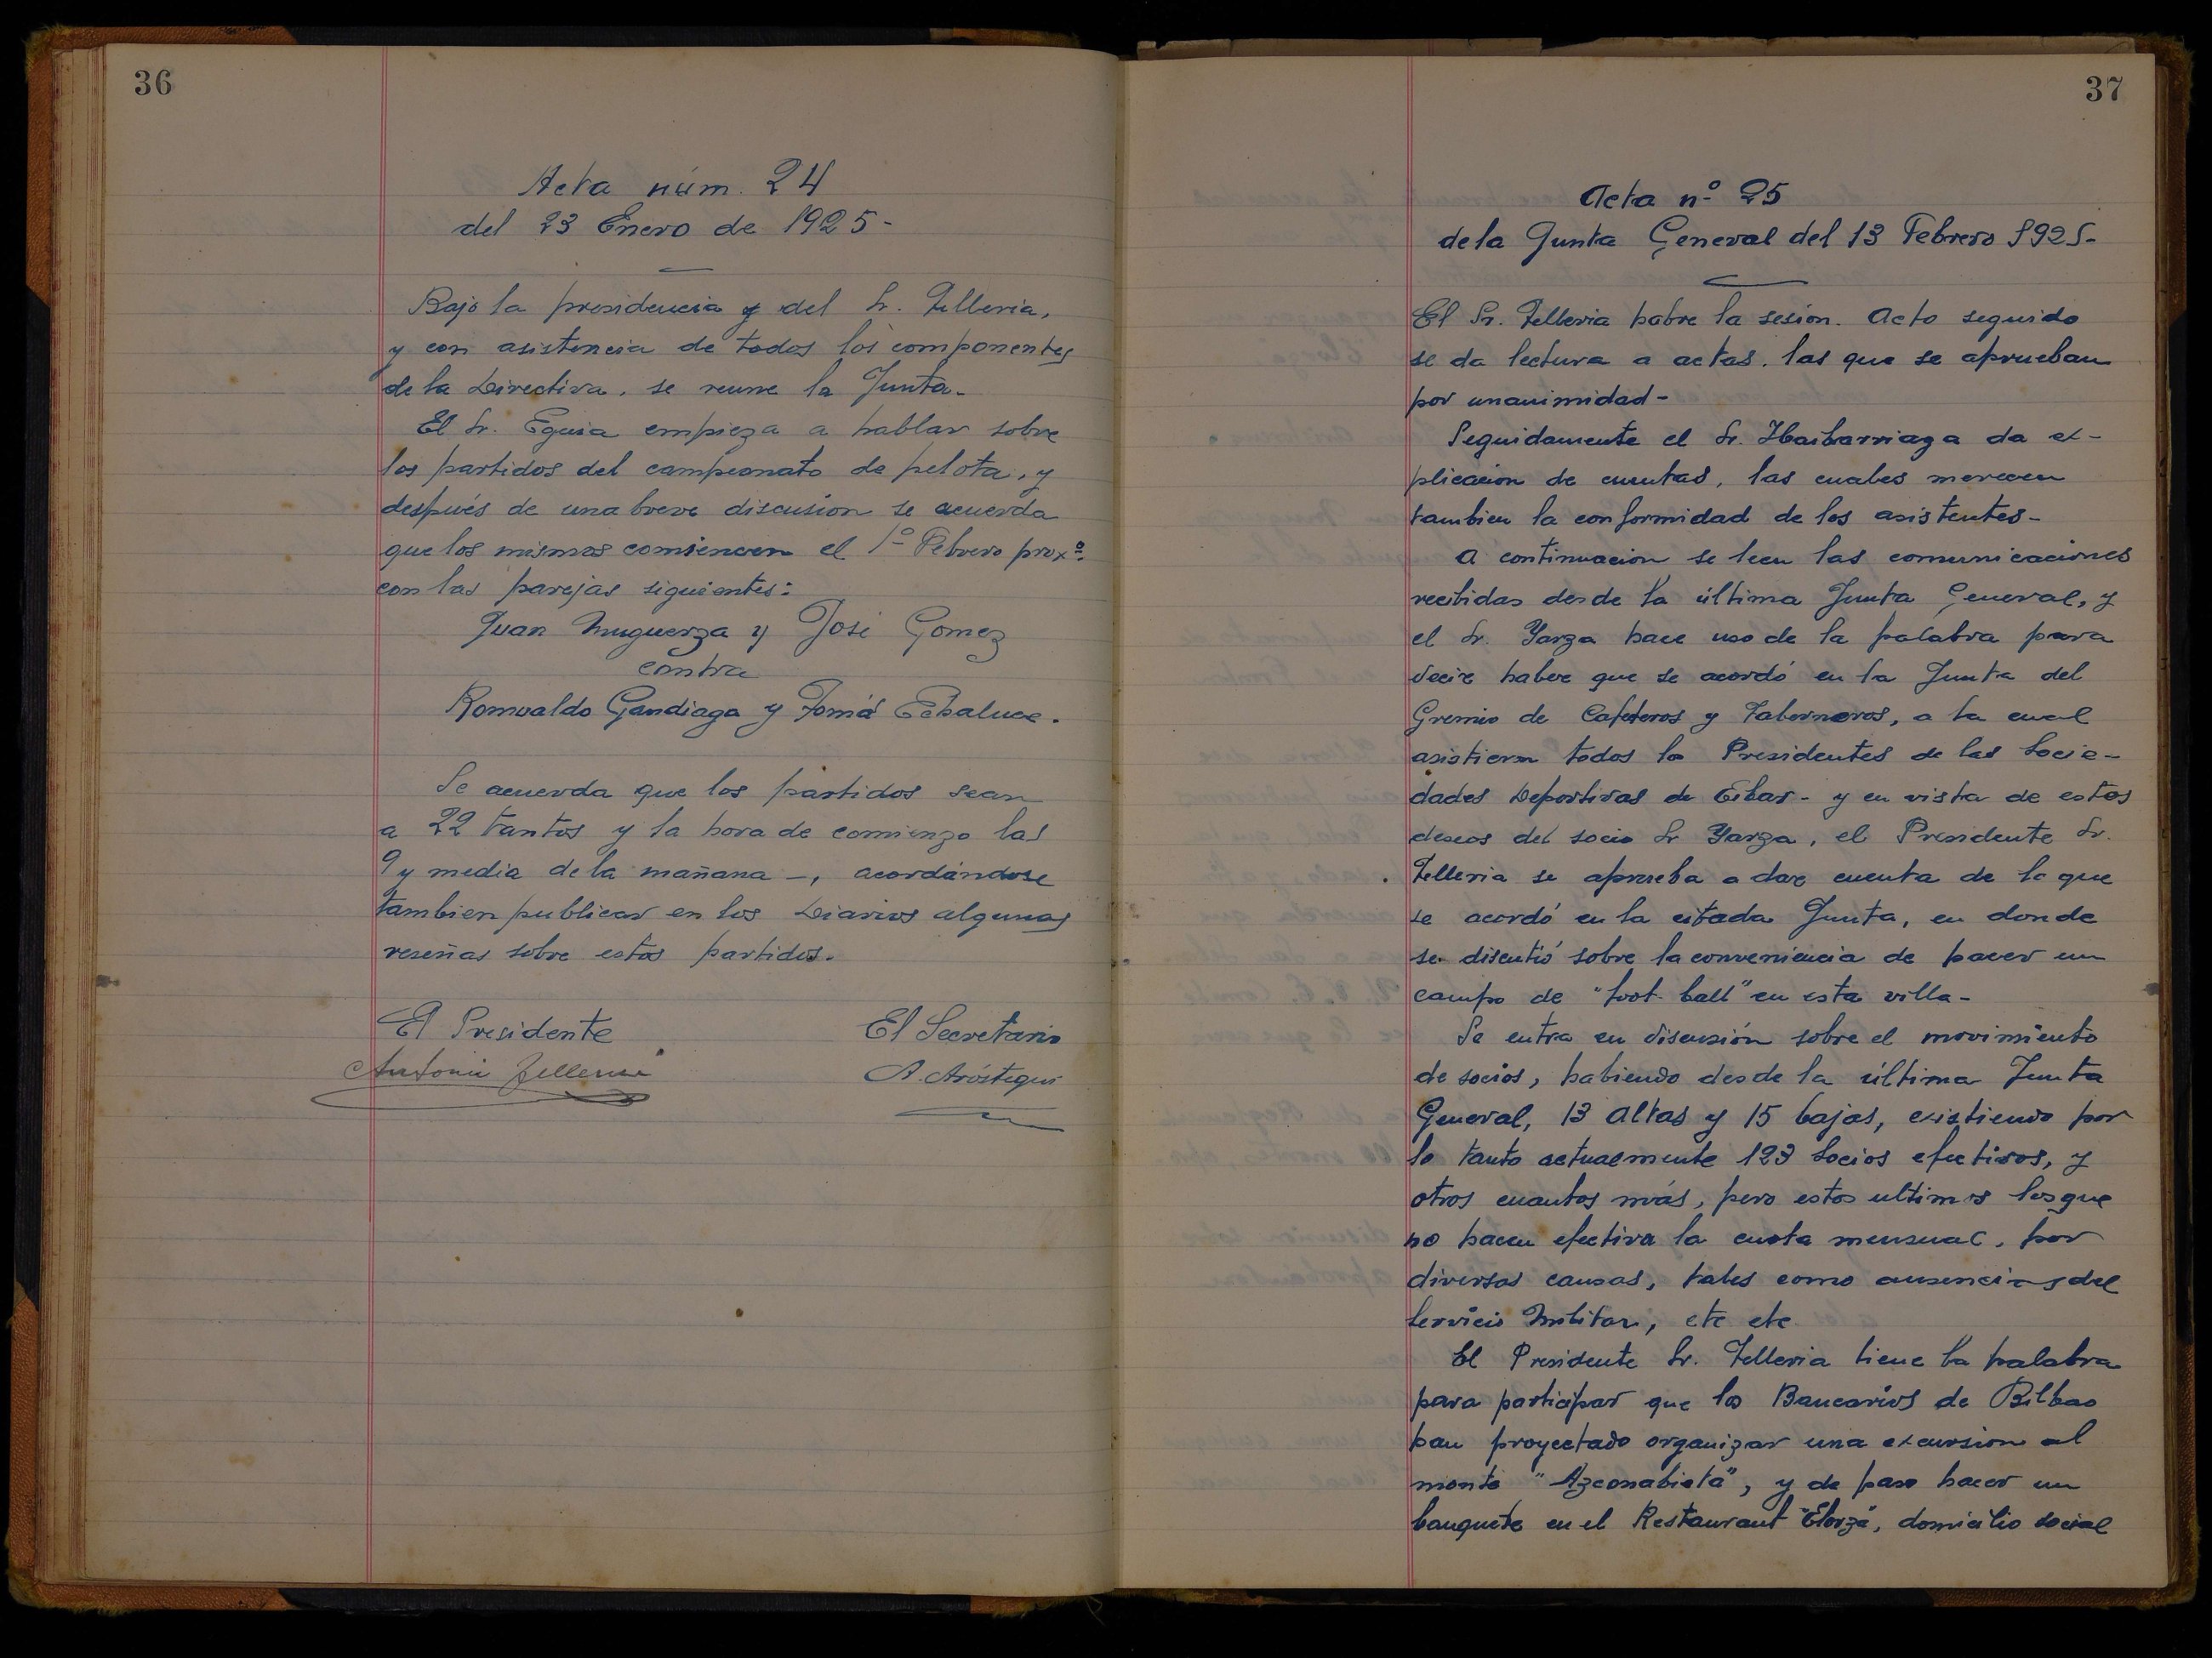 36
Acta núm. 24
del 23 Enero de 1925-
Bajo la presidencia y del Sr. Telleria,
y con asistencia de todos los componentes
de la Directiva, se reune la Junta-
El Sr. Eguia empieza a hablar sobre
los partidos del campeonato de pelota, y
después de una breve discusion se acuerda
que los mismos comiencen el 1º Febrero proxº.
con las parejas siguientes:
Juan Muguerza y José Gomez
contra
Romualdo Gandiaga y Tomá Echaluce.
Se acuerda que los partidos sean
a 22 tantos y la hora de comienzo las
9 y media de la mañana -, acordándose
tambien publicar en los Diarios algunas
reseñas sobre estos partidos.
El Presidente
El Secretario
Antonio Telleria
A. Aróstegui
37
Acta nº 25
de la Junta General del 13 Febrero 1925-
El Sr. Telleria habre la sesion. Acto seguido
se da lectura a actas, las que se aprueban
por unanimidad-
Seguidamente el Sr. Ibaibarriaga da ex-
plicacion de cuentas, las cuales merecen
tambien la conformidad de los asistentes-
A continuacion se leen las comunicaciones
recibidas desde la última Junta General, y
el Sr. Yarza hace uso de la palabra para
decir haber que se acordó en la Junta del
Gremio de Cafeteros y Taberneros, a la cual
asistieron todos lo Presidentes de las Socie-
dades Deportivas de Eibar- y en vista de estos
deseos del socio Sr Yarza, el Presidente Sr.
Telleria se aprueba a dar cuenta de lo que
se acordó en la citada Junta, en donde
se discutió sobre la conveniencia de hacer un
campo de "foot-ball" en esta villa-
Se entra en discusión sobre el movimiento
de socios, habiendo desde la última Junta
General, 13 altas y 15 bajas, existiendo por
lo tanto actualmente 123 Socios efectivos, y
otros cuantos más, pero estos ultimos los que
no hacen efectiva la cuota mensual, por
diversas causas, tales como ausencias del
Servicio Militar, etc etc
El Presidente Sr. Telleria tiene la palabra
para participar que los Bancarios de Bilbao
han proyectado organizar una excursion al
monte "Azconabieta", y de paso hacer un
banquete en el Restaurant "Elorza", domicilio social